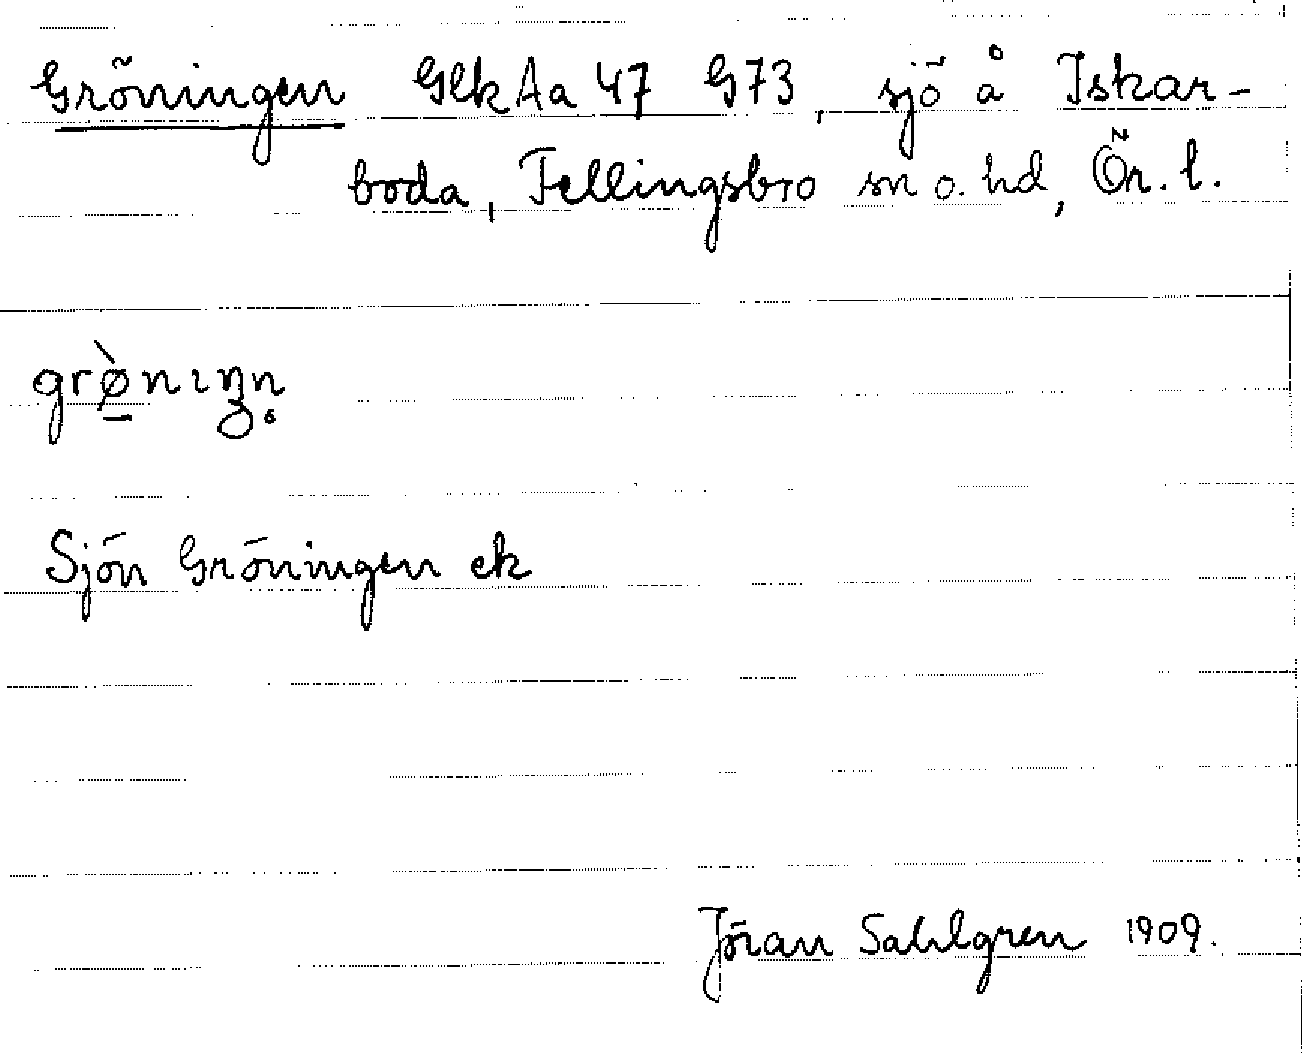 Gröningen GlkAa 47 G73, sjö å Iskar-
boda, Fellingsbro sn o. hd, Ör. l.
grø̠̀nıŋn̥
Sjön Gröningen ek
Jöran Sahlgren 1909.